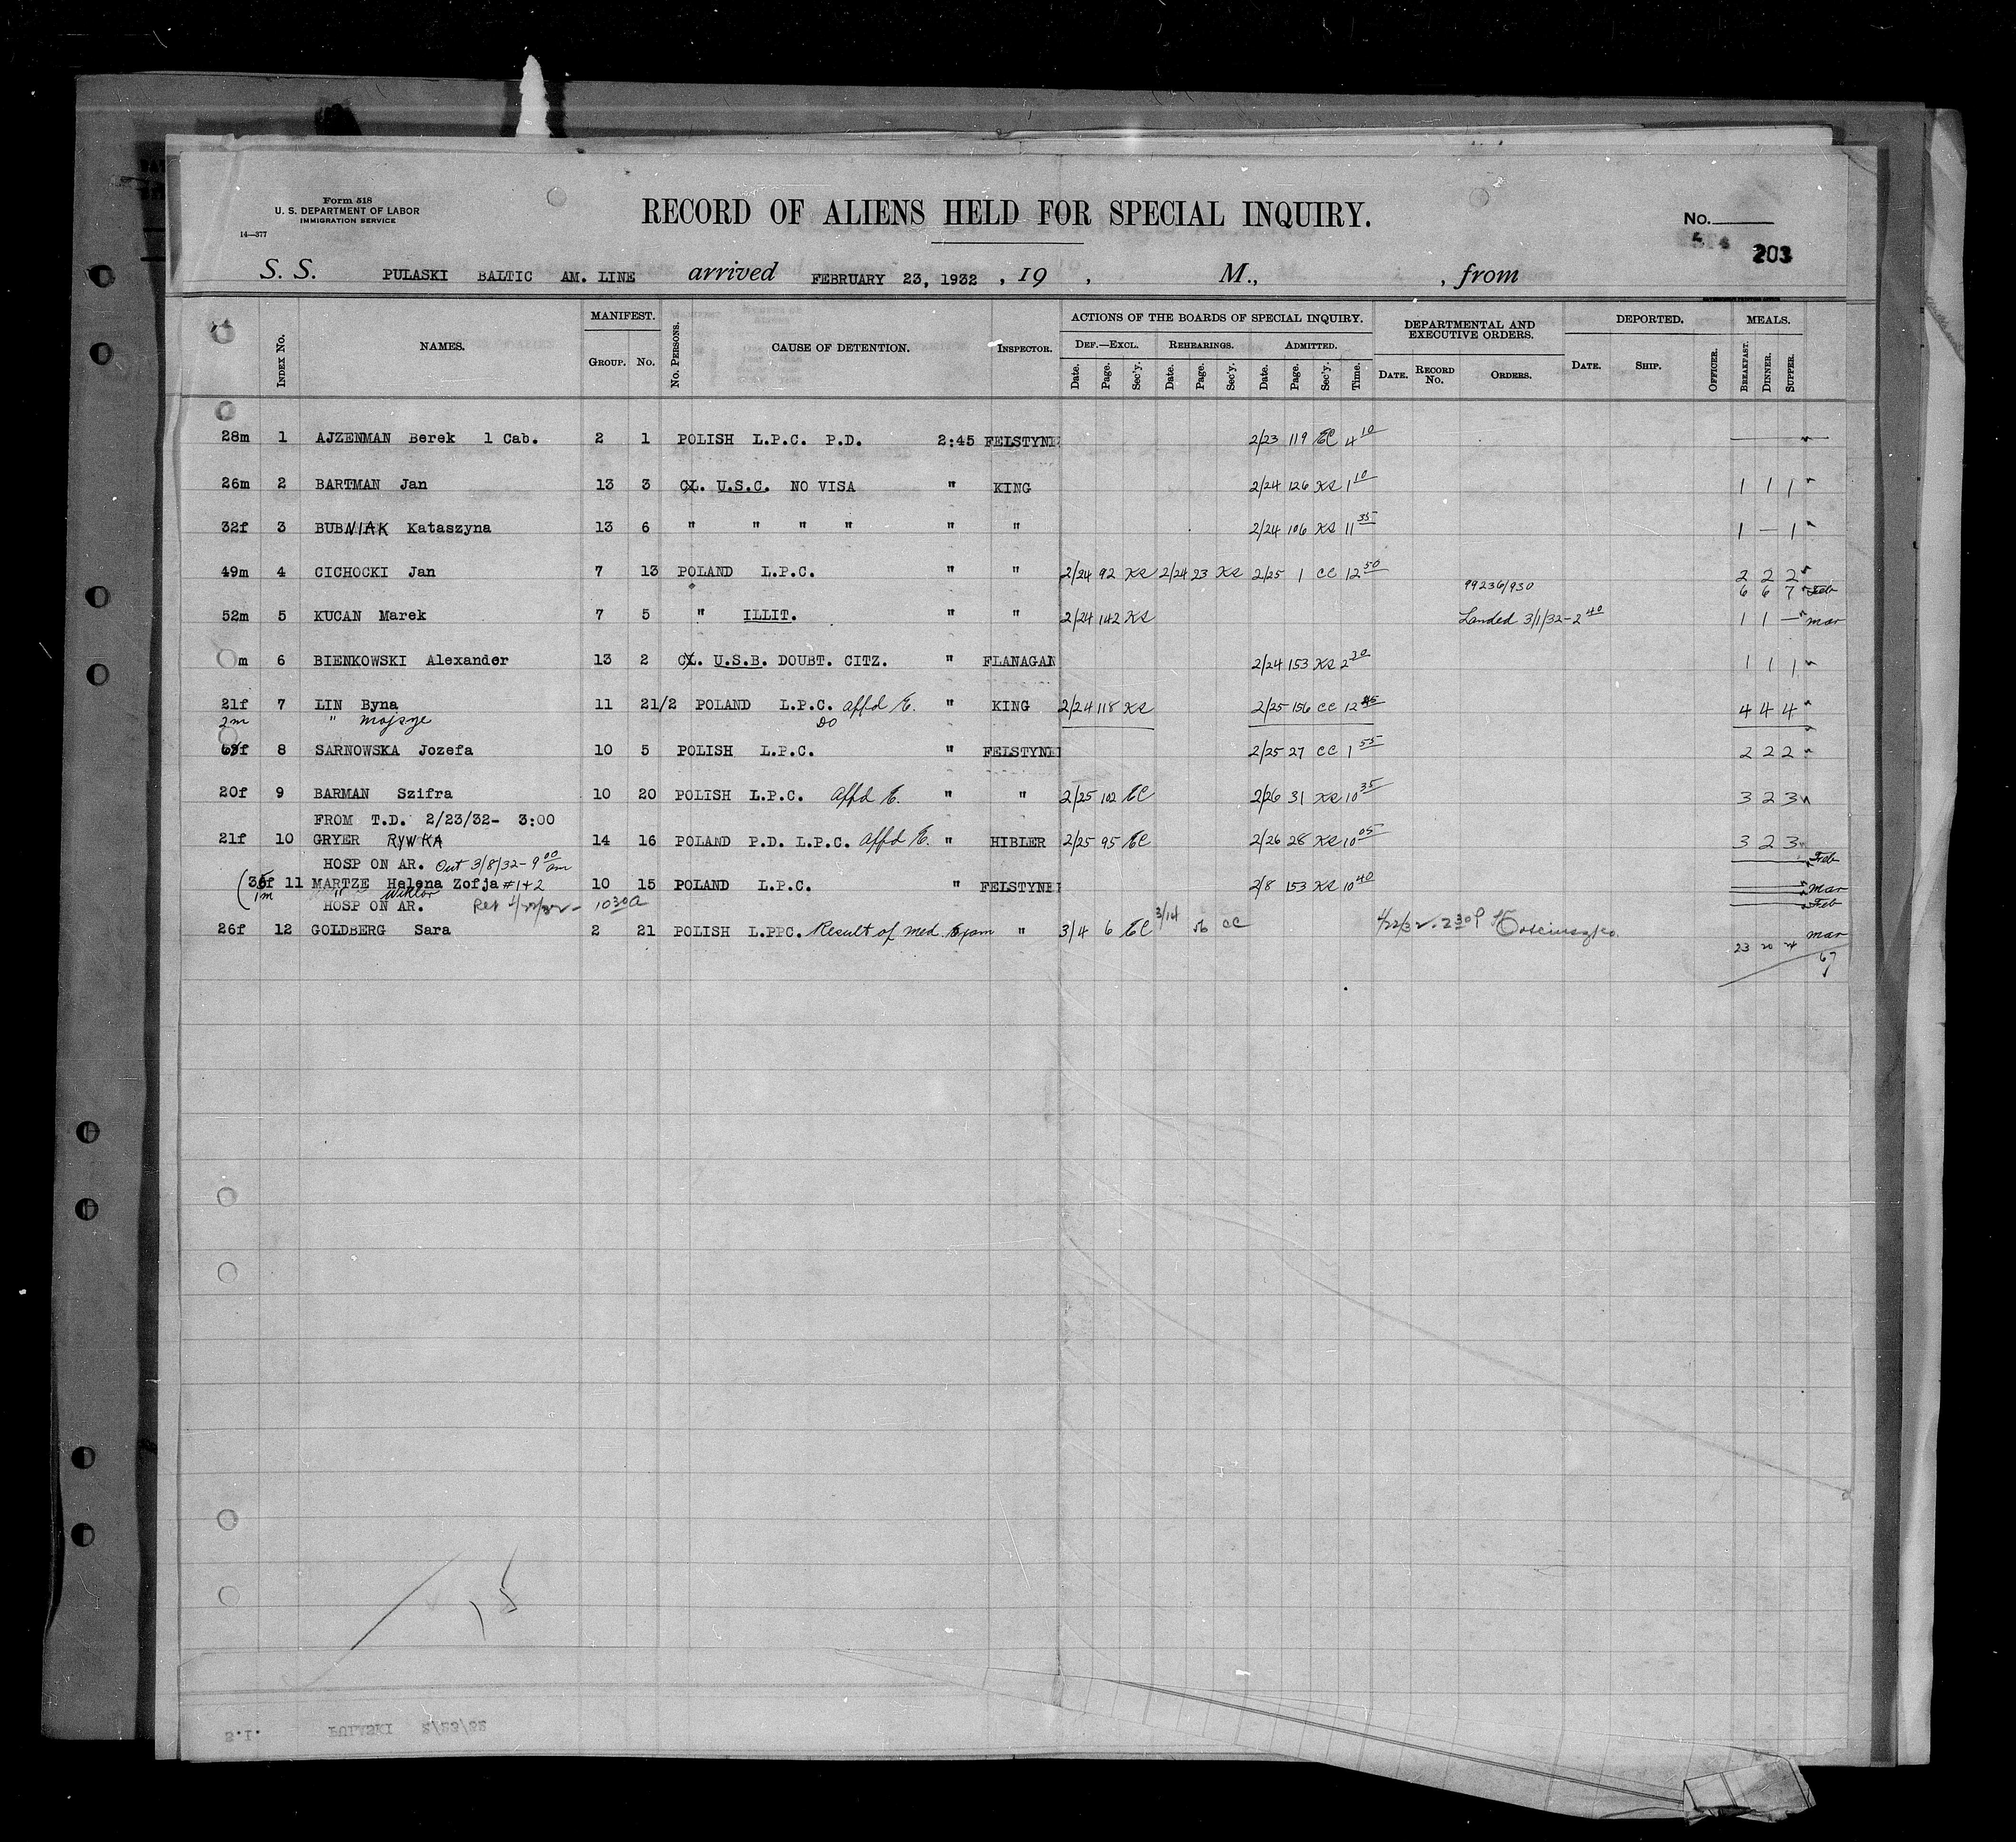 Form 518
U. S. DEPARTMENT OF LABOR
IMMIGRATION SERVICE
14—377
RECORD OF ALIENS HELD FOR SPECIAL INQUIRY.
No.
203
S. S. PULASKI BALTIC AM. LINE arrived FEBRUARY 23, 1932 , 19 , M., , from
INDEX No. NAMES. MANIFEST. GROUP. No. No. PERSONS. CAUSE OF DETENTION. INSPECTOR. ACTIONS OF THE BOARDS OF SPECIAL INQUIRY. DEF.—EXCL. Date. Page. Sec'y. REHEARINGS. Date. Page. Sec'y. ADMITTED. Date. Page. Sec'y. Time. DEPARTMENTAL AND EXECUTIVE ORDERS. DATE. RECORD No. ORDERS. DEPORTED. DATE. SHIP. OFFICER. MEALS. BREAKFAST. DINNER. SUPPER.
28m 1 AJZENMAN Berek 1 Cab. 2 1 POLISH L.P.C. P.D. 2:45 FELSTYNE 2/23 119 EC 4 10
26m 2 BARTMAN Jan 13 3 CL. U.S.C. NO VISA " KING 2/24 126 KS 1 10 1 1 1
32f 3 BUBNIAK Kataszyna 13 6 " " " " " " 2/24 106 KS 11 35 1 — 1
49m 4 CICHOCKI Jan 7 13 POLAND L.P.C. " " 2/24 92 KS 2/24 23 KS 2/25 1 CC 12 50 2 2 2
99236/930 6 6 7 Feb
52m 5 KUCAN Marek 7 5 " ILLIT. " " 2/24 142 KS Landed 3/1/32 - 2 40 1 1 — mar
m 6 BIENKOWSKI Alexander 13 2 CL. U.S.B. DOUBT. CITZ. " FLANAGAN 2/24 153 KS 2 20 1 1 1
21f 7 LIN Byna 11 21/2 POLAND L.P.C. affd E. " KING 2/24 118 KS 2/25 156 CC 12 45 4 4 4
2m " Mojsze DO
8 SARNOWSKA Jozefa 10 5 POLISH L.P.C. " FELSTYNE 2/25 27 CC 1 55 2 2 2
20f 9 BARMAN Szifra 10 20 POLISH L.P.C. Affd E. " " 2/25 102 EC 2/26 31 KS 10 35 3 2 3
FROM T.D. 2/23/32- 3:00
21f 10 GRYER RYWKA 14 16 POLAND P.D. L.P.C. affd E. " HIBLER 2/25 95 EC 2/26 28 KS 10 05 3 2 3
HOSP ON AR. Out 3/8/32 - 9 00 am Feb
11 MARTZE Helena Zofja #1+2 10 15 POLAND L.P.C. " FELSTYNE 2/8 153 KS 10 40 mar
1m " Wiktor
HOSP ON AR. 10 30 A Feb
26f 12 GOLDBERG Sara 2 21 POLISH L.PPC. Result of med. Exam " 3/4 6 EC 3/14 56 CC 4/22/32 - 2 30 P Kosciuszko. mar
23 20 24 67
15
S.I. PULASKI 2/23/32